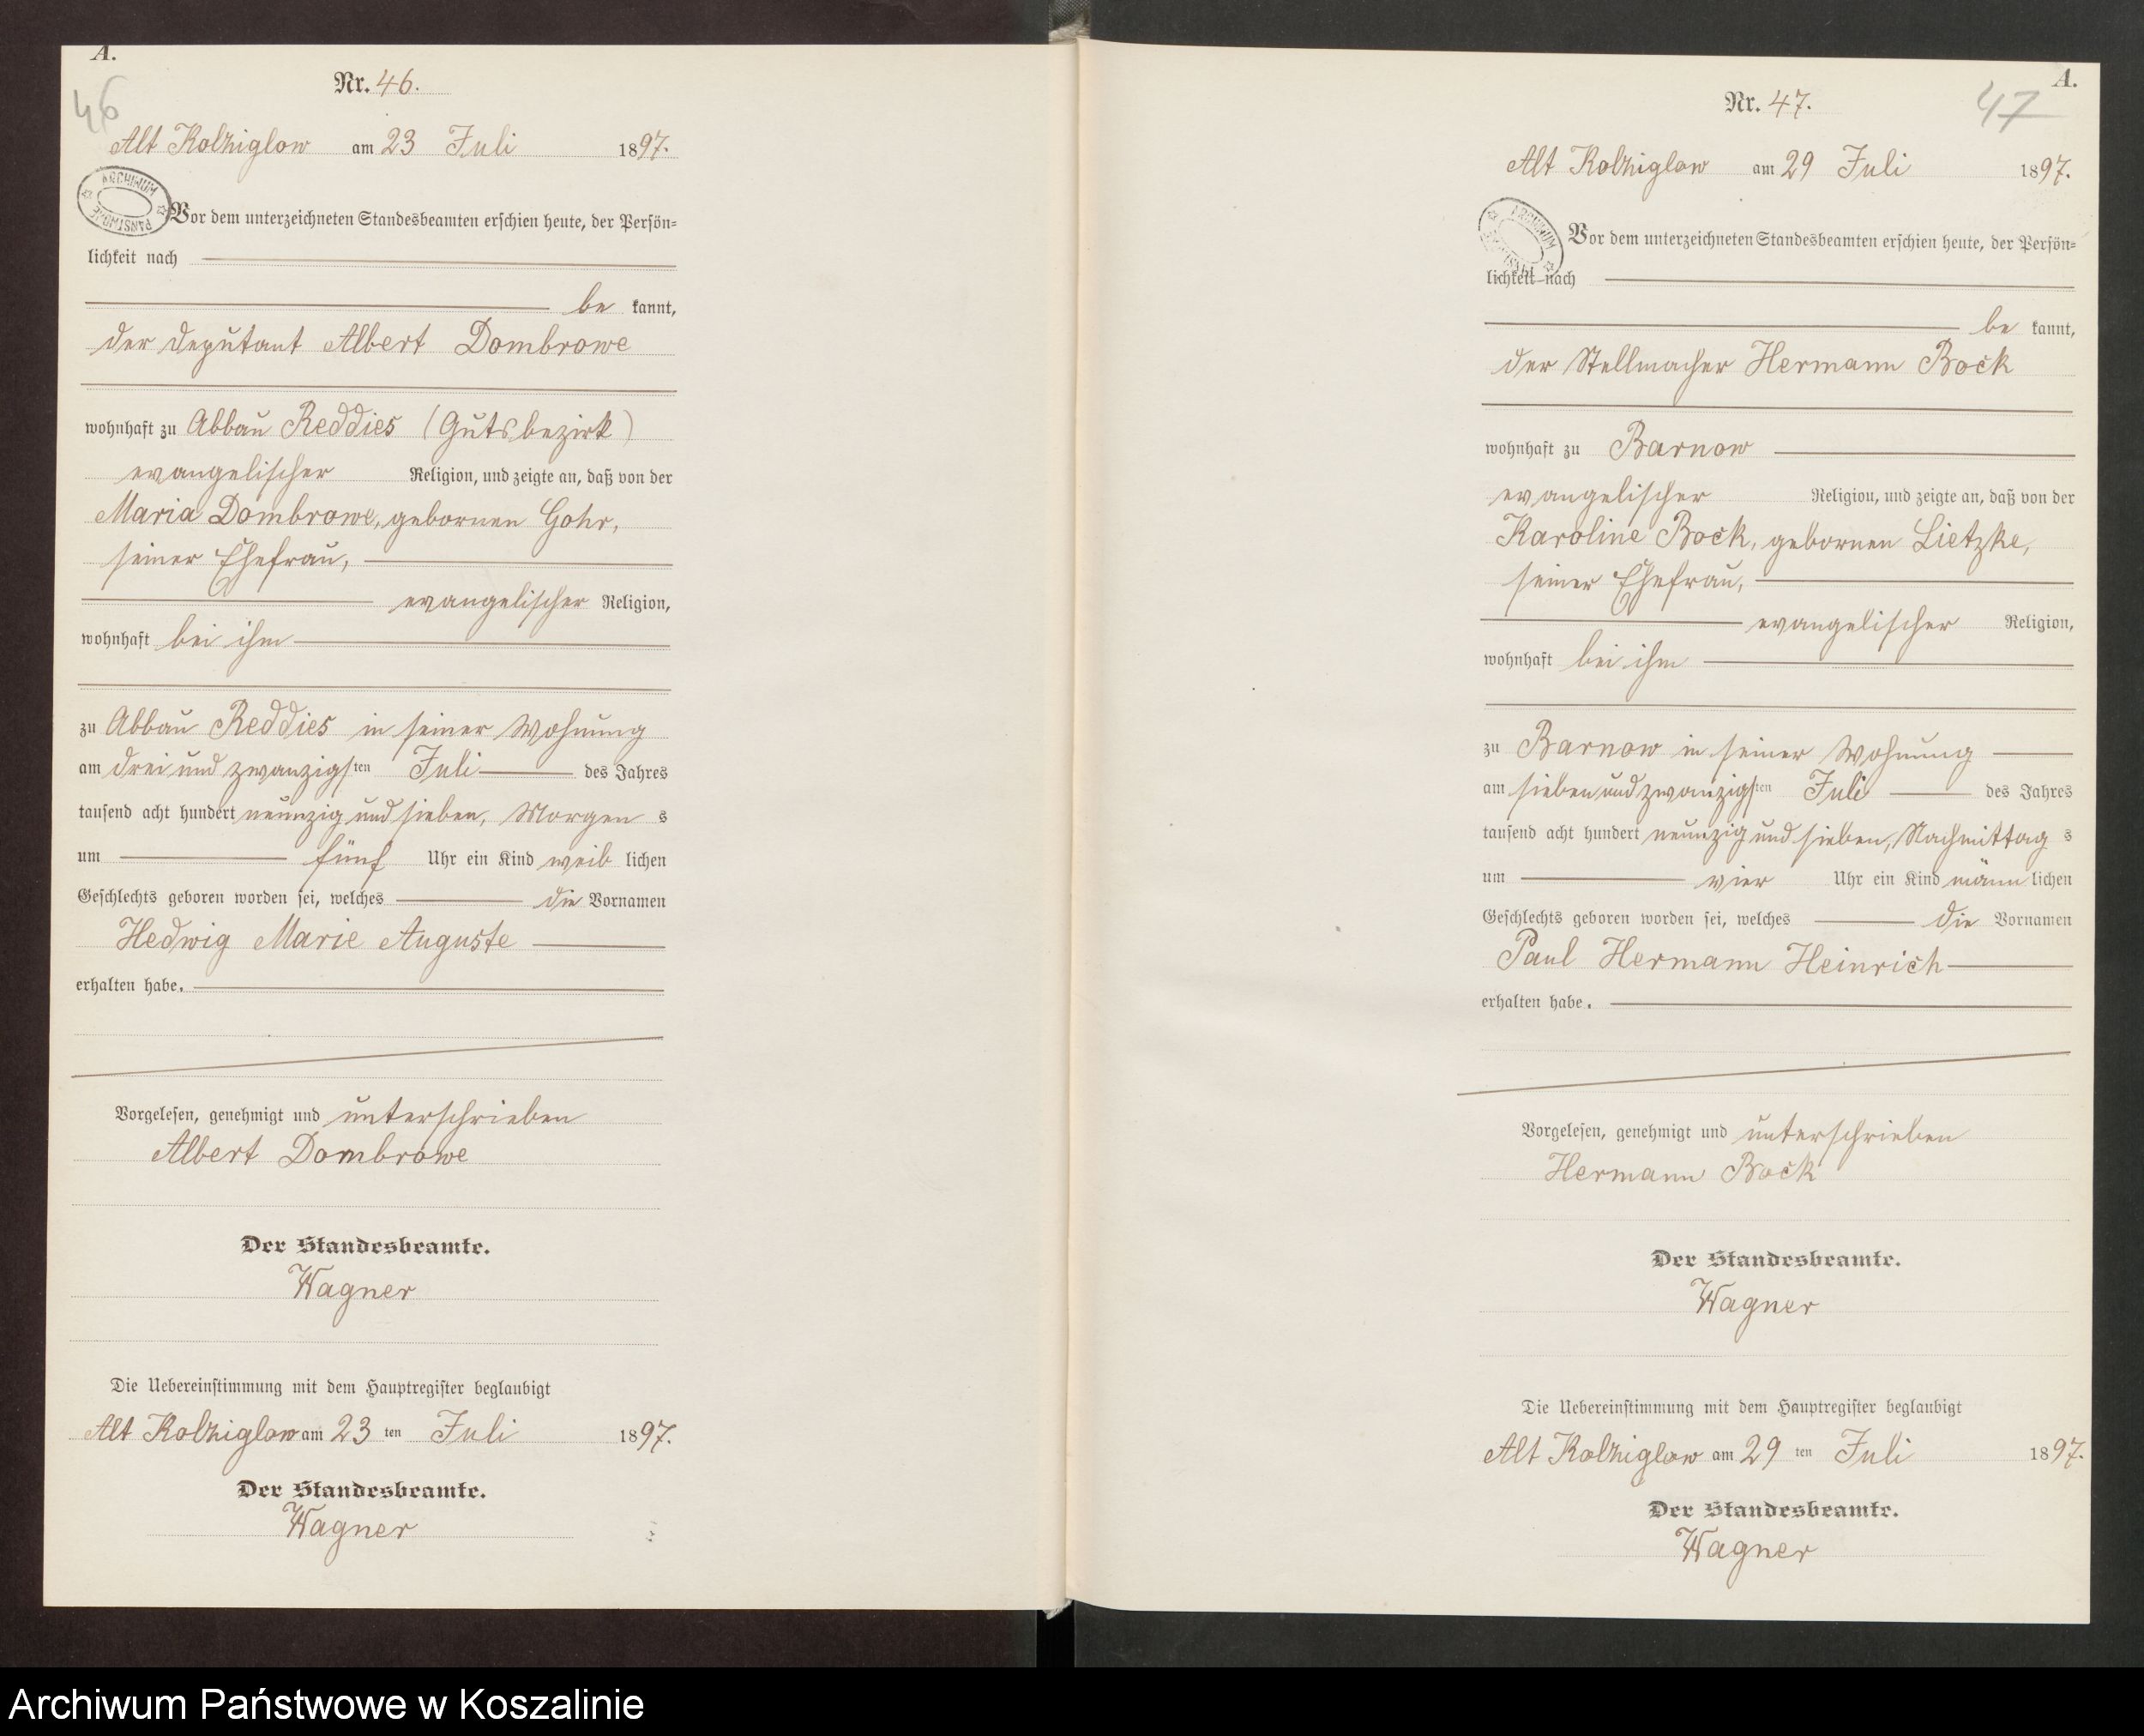 A.
46
Nr. 46.
Alt Kolziglow am 23 Juli 1897.
ARCHIWUM PAŃSTWOWE
Vor dem unterzeichneten Standesbeamten erschien heute, der Persön=
lichkeit nach
be kannt,
der Deputant Albert Dombrowe
wohnhaft zu Abbau Reddies (Gutsbezirk)
evangelischer Religion, und zeigte an, daß von der
Maria Dombrowe, gebornen Gohr,
seiner Ehefrau,
evangelischer Religion,
wohnhaft bei ihm
zu Abbau Reddies in seiner Wohnung
am drei und zwanzigsten Juli des Jahres
tausend acht hundert neunzig und sieben, Morgen s
um fünf Uhr ein Kind weib lichen
Geschlechts geboren worden sei, welches die Vornamen
Hedwig Marie Auguste
erhalten habe.
Vorgelesen, genehmigt und unterschrieben
Albert Dombrowe
Der Standesbeamte.
Wagner
Die Uebereinstimmung mit dem Hauptregister beglaubigt
Alt Kolziglow am 23 ten Juli 1897.
Der Standesbeamte.
Wagner
A.
47
Nr. 47.
Alt Kolziglow am 29 Juli 1897.
ARCHIWUM
Vor dem unterzeichneten Standesbeamten erschien heute, der Persön=
lichkeit nach
be kannt,
der Stellmacher Hermann Bock
wohnhaft zu Barnow
evangelischer Religion, und zeigte an, daß von der
Karoline Bock, gebornen Lietzke,
seiner Ehefrau,
evangelischer Religion,
wohnhaft bei ihm
zu Barnow in seiner Wohnung
am sieben und zwanzigsten Juli des Jahres
tausend acht hundert neunzig und sieben, Nachmittag s
um vier Uhr ein Kind männ lichen
Geschlechts geboren worden sei, welches die Vornamen
Paul Hermann Heinrich
erhalten habe.
Vorgelesen, genehmigt und unterschrieben
Hermann Bock
Der Standesbeamte.
Wagner
Die Uebereinstimmung mit dem Hauptregister beglaubigt
Alt Kolziglow am 29 ten Juli 1897.
Der Standesbeamte.
Wagner
Archiwum Państwowe w Koszalinie